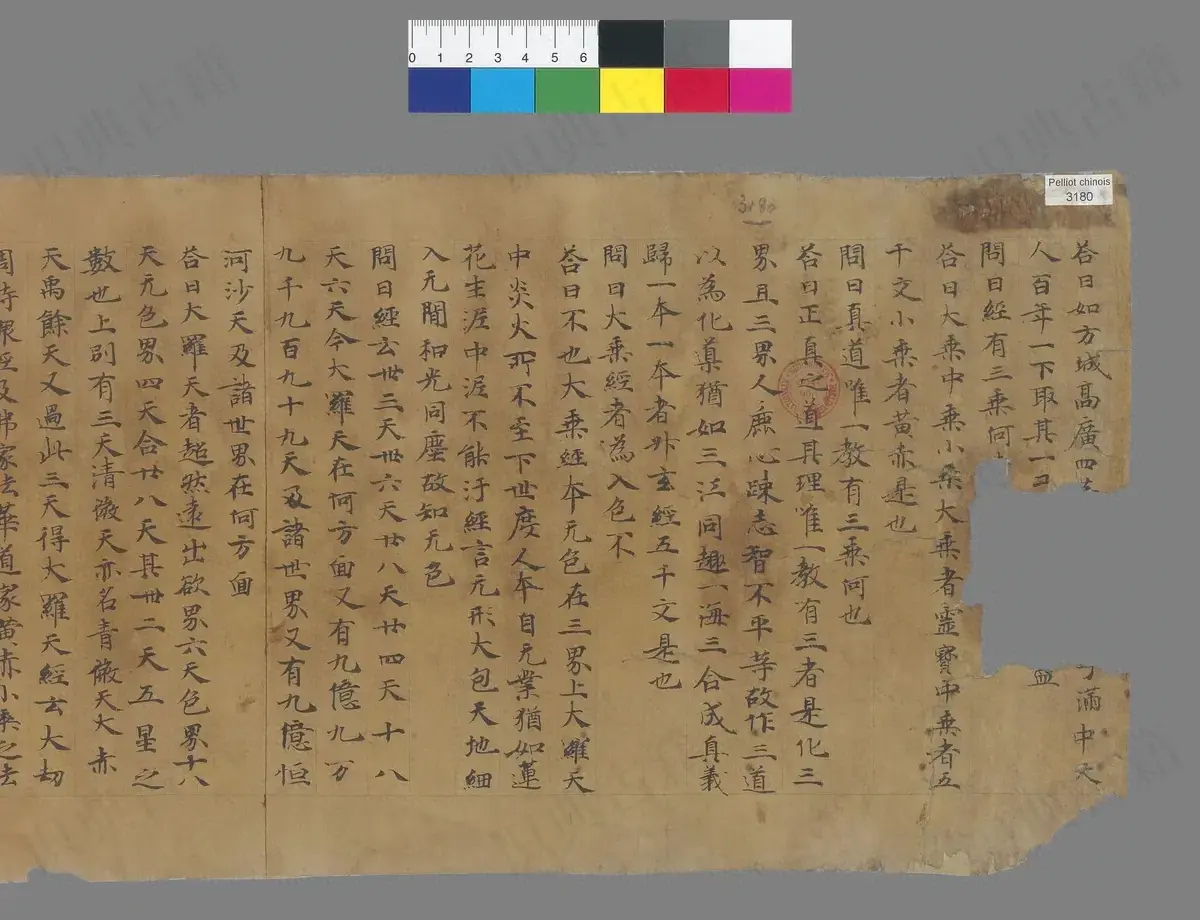 Pelliot chinois
3180
3180
0 1 2 3 4 5 6
荅曰如方城高廣四
滿中天
人百年一下取其一
問曰經有三乘何
荅曰大乘中乘小乘大乘者靈寶中乘者五
千文小乘者黃赤是也
問曰真道唯一教有三乘何也
荅曰正真之道其理唯一教有三者是化三
界且三界人麁心踈志智不平等故作三道
以為化導猶如三江同趣一海三合成真義
歸一本一本者外玄經五千文是也
問曰大乘經者為入色不
荅曰不也大乘經本无色在三界上大羅天
中炎火所不至下世度人本自无業猶如蓮
花生渥中渥不能汙經言元形大包天地細
入无間和光同塵故知无色
問曰經云卅三天卅六天廿八天廿四天十八
天六天今大羅天在何方面又有九億九万
九千九百九十九天及諸世界又有九億恒
河沙天及諸世界在何方面
荅曰大羅天者超然遠出欲界六天色界十八
天无色界四天合廿八天其卅二天五星之
數也上別有三天清微天亦名青微天大赤
天禹餘天又過此三天得大羅天經云大劫
家法華道家黃赤小乘之法
貝典古籍